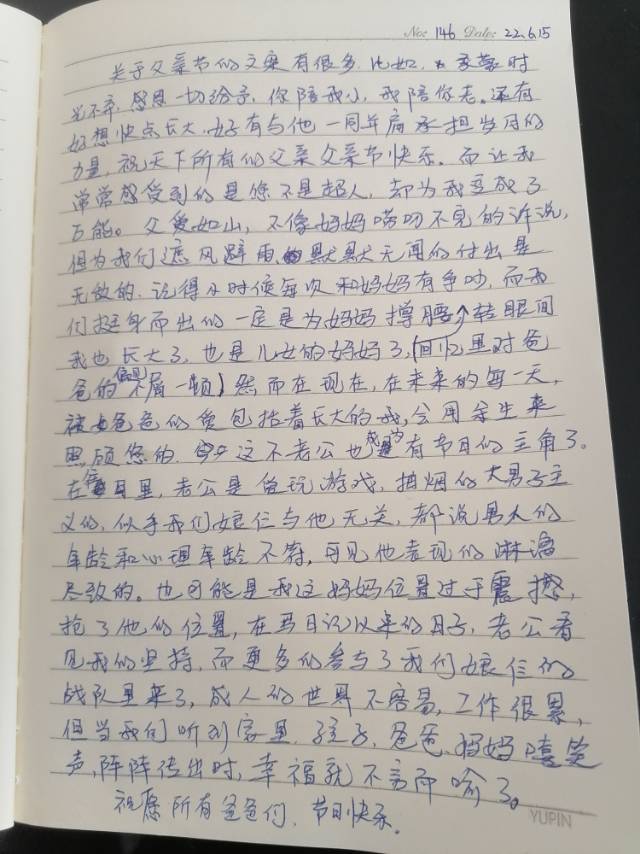 No: 146 Date: 22.6.15
关于父亲节的文案有很多,比如,时
光不弃,感恩一切给予,你陪我小,我陪你老。还有
好想快点长大,好有与他一同并肩承担岁月的
力量,祝天下所有的父亲父亲节快乐。而让我
常常感受到的是您不是超人,却为我变成了
万能。父爱如山,不像妈妈唠叨不完的诉说,
但为我们遮风避雨,默默无闻的付出是
无敌的,记得小时候每次和妈妈有争吵,而我
们挺身而出的一定是为妈妈撑腰,转眼间
我也长大了,也是儿女的妈妈了,(回忆里对爸
爸的偏见不屑一顾)然而在现在,在未来的每一天,
被爸爸的爱包括着长大的我,会用余生来
照顾您的。这不老公也成为有节日的主角了。
在日里,老公是爱玩游戏,抽烟的大男子主
义的,似乎我们娘仨与他无关,都说男人的
年龄和心理年龄不符,可见他表现的淋漓
尽致的。也可能是我这妈妈位置过于震撼,
抢了他的位置,在马日记以来的日子,老公看
见我的坚持,而更多的参与了我们娘仨的
战队里来了,成人的世界不容易,工作很累,
但当我们听到家里,孩子,爸爸,妈妈嘻笑
声,阵阵传出时,幸福就不言而喻了。
祝愿所有爸爸们,节日快乐。
YUPIN